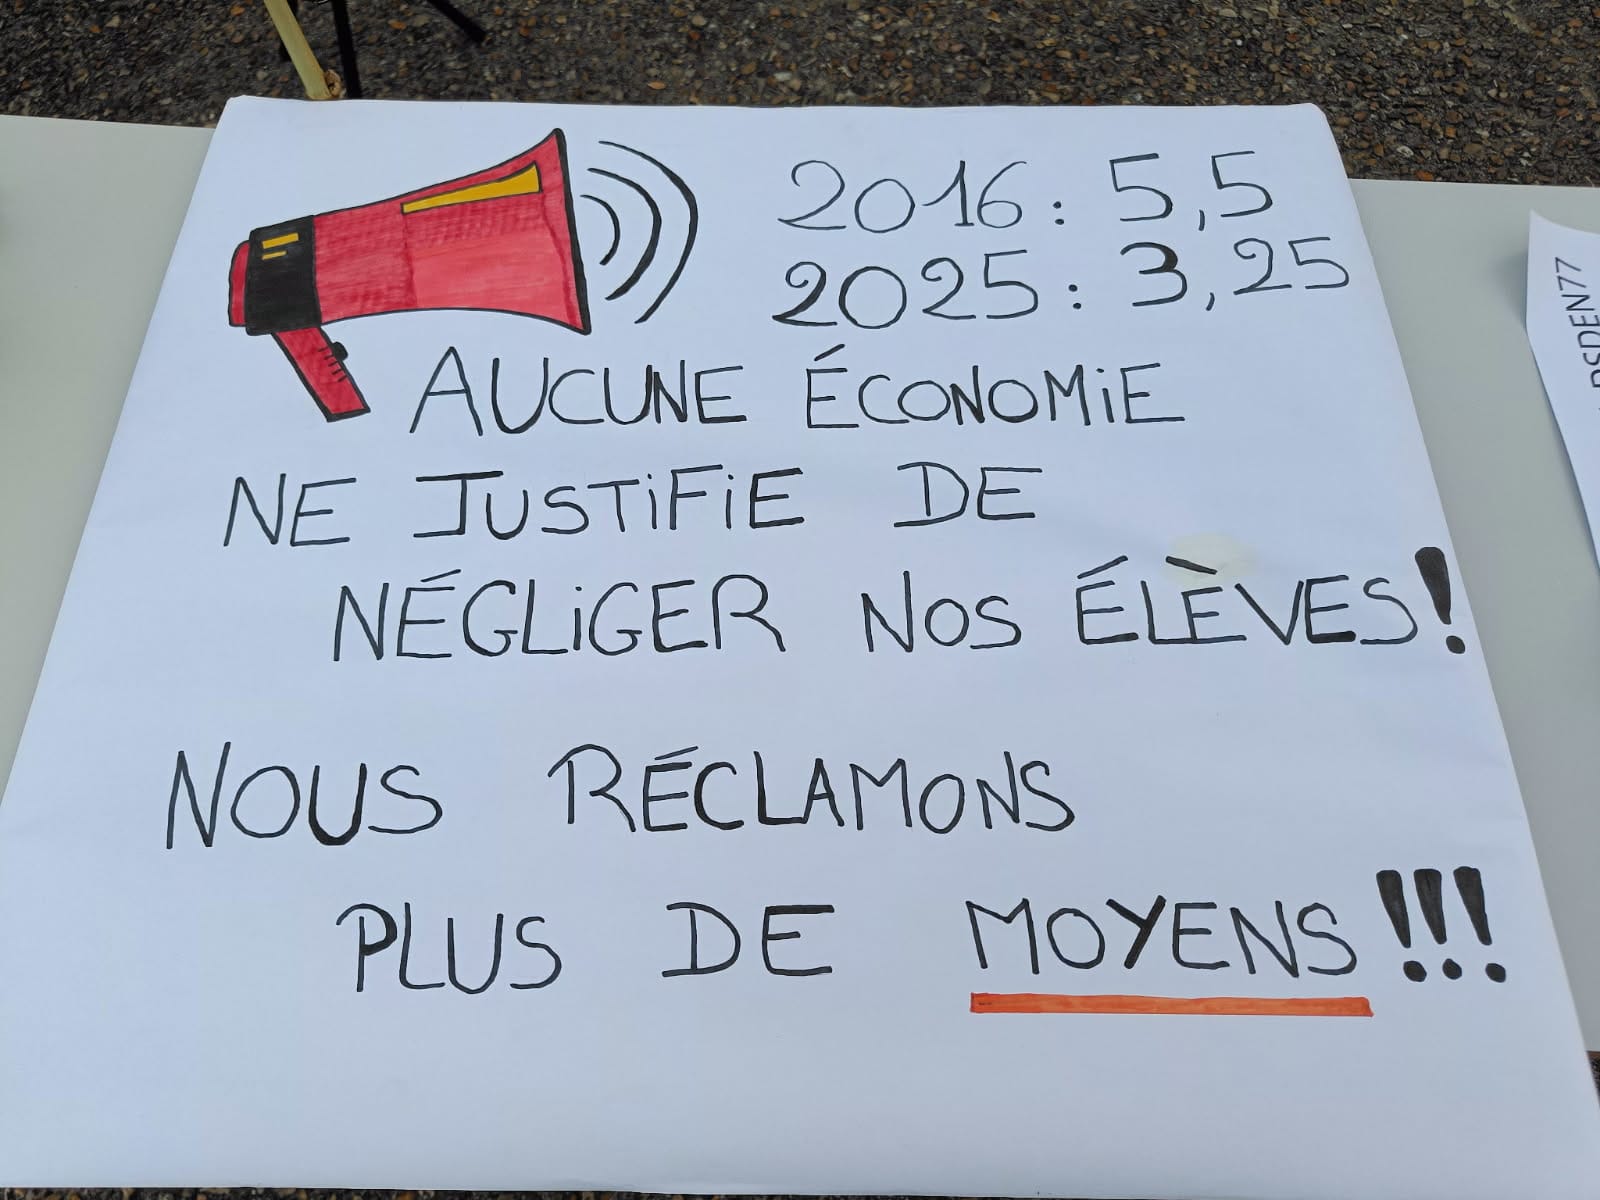 2016 : 5,5
2025 : 3,25
AUCUNE ÉCONOMIE
NE JUSTIFIE DE
NÉGLIGER NOS ÉLÈVES!
NOUS RÉCLAMONS
PLUS DE MOYENS!!!
DSDEN77